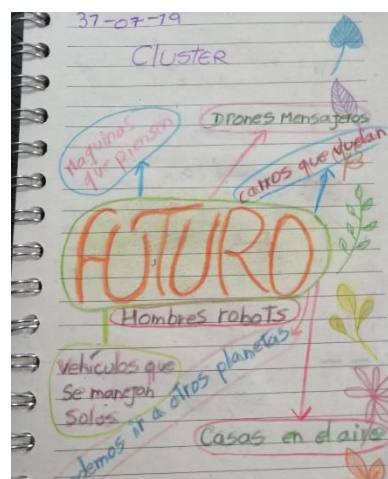 31-07-19
CLUSTER
Drones Mensajeros
Maquinas
que piensan
carros que vuelan
FUTURO
Hombres robots
Vehículos que
se manejan
solos
demos ir a otros planetas
Casas en el aire